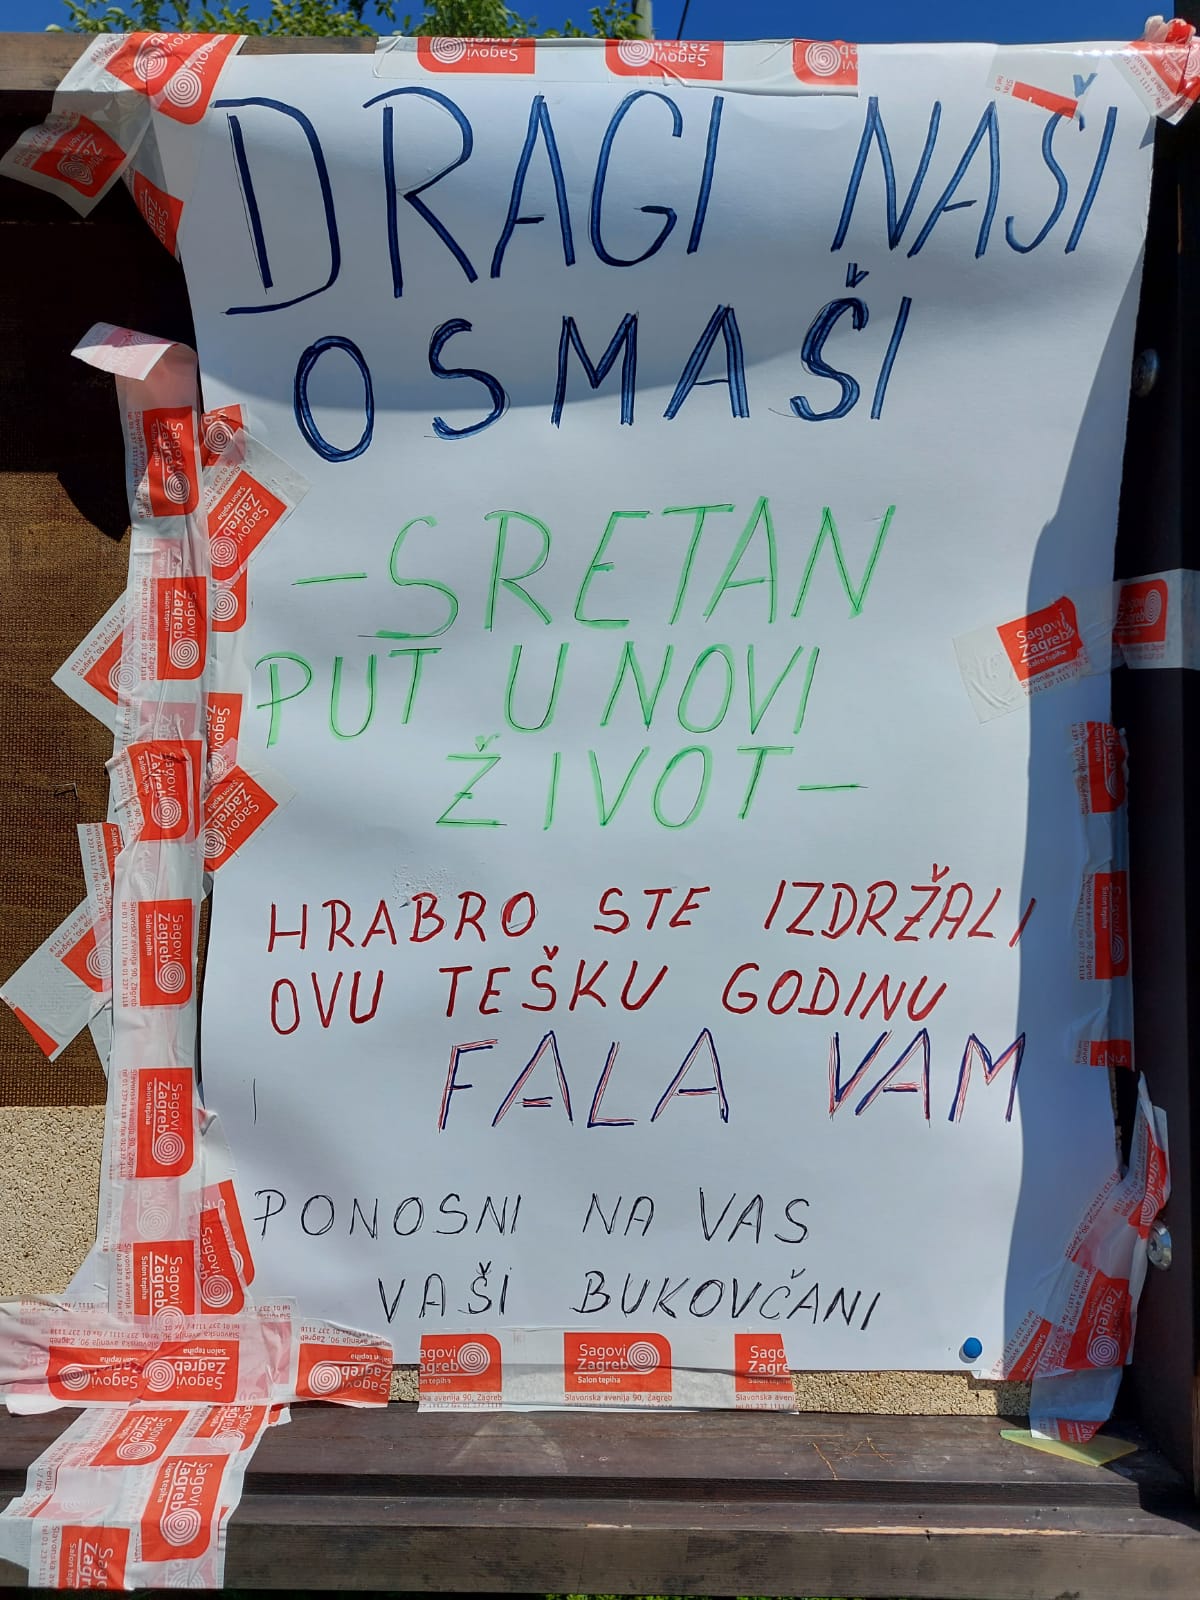 DRAGI NAŠI
OSMAŠI
-SRETAN
PUT U NOVI
ŽIVOT-
HRABRO STE IZDRŽALI
OVU TEŠKU GODINU
FALA VAM
PONOSNI NA VAS
VAŠI BUKOVČANI
Sagovi
Zagreb
Salon tepiha
Slavonska avenija 90, Zagreb